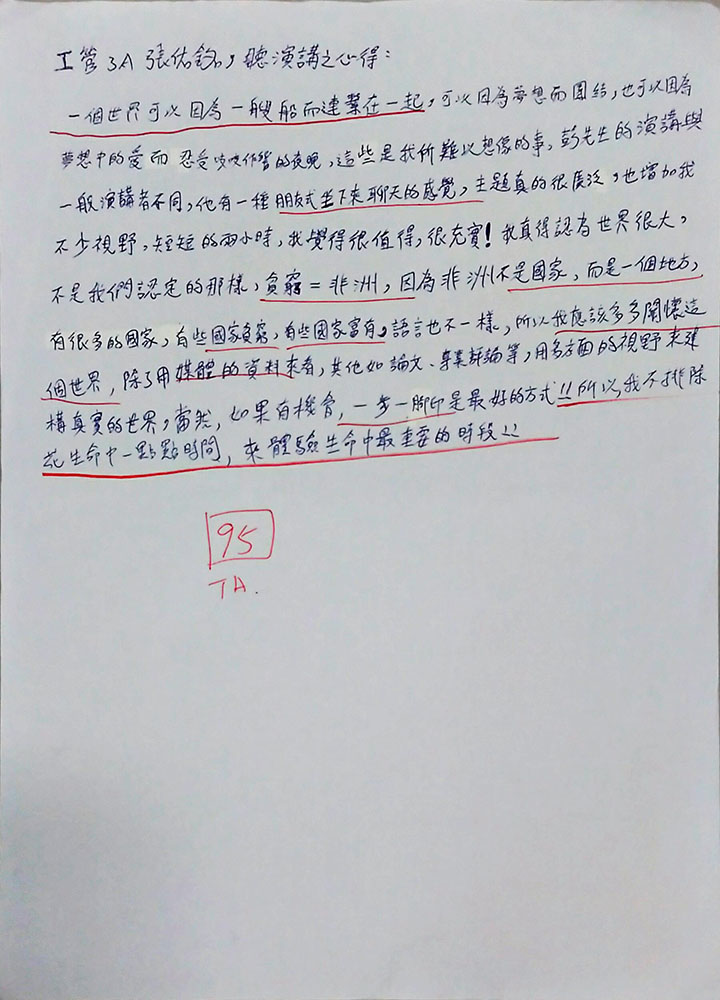 工管3A 張佑銘,聽演講之心得:
一個世界可以因為一艘船而連繫在一起,可以因為夢想而團結,也可以因為
夢想中的愛而忍受吱吱作響的夜晚,這些是我所難以想像的事,彭先生的演講與
一般演講者不同,他有一種朋友式坐下來聊天的感覺,主題真的很廣泛,也增加我
不少視野,短短的兩小時,我覺得很值得,很充實!我真得認為世界很大,
不是我們認定的那樣,貧窮=非洲,因為非洲不是國家,而是一個地方,
有很多的國家,有些國家貧窮,有些國家富有,語言也不一樣,所以我應該多多關懷這
個世界,除了用媒體的資料來看,其他如論文、專業評論等,用多方面的視野來建
構真實的世界,當然,如果有機會,一步一腳印是最好的方式!!所以我不排除
花生命中一點點時間,來體驗生命中最重要的時段!!
95
TA.